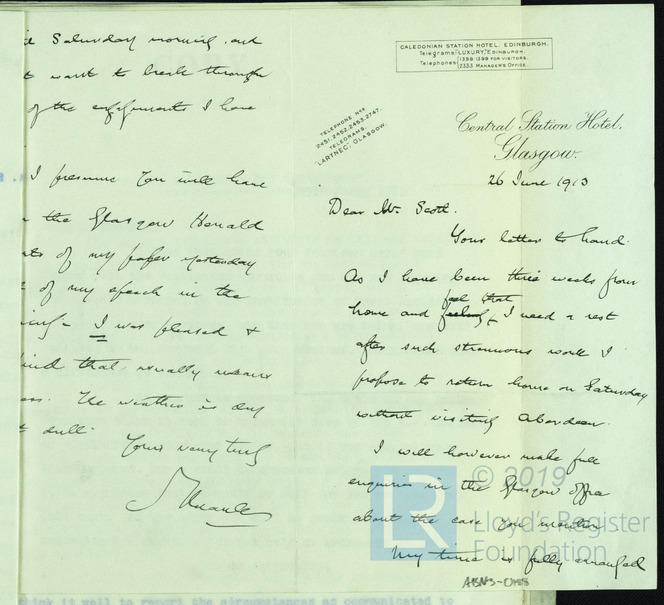 CALEDONIAN STATION HOTEL, EDINBURGH.
Telegrams: "LUXURY," EDINBURGH.
Telephones 1398 1399 FOR VISITORS.
2333 MANAGER'S OFFICE.
TELEPHONE Nos
2451, 2452, 2453, 2747.
TELEGRAMS:
"LARTNEC, GLASGOW.
Central Station Hotel,
Glasgow.
26 June 1913
Dear Mr. Scott.
Your letter to hand.
As I have been three weeks from
home and feeling feel that I need a rest
after such strenuous work I
propose to return home on Saturday
without visiting Aberdeen.
I will however make full
enquiries in the Glasgow office
about the case you mention
My time is fully arranged
Saturday morning, and
want to break through
of the engagements I have
I presume you will have
the Glasgow Herald
of my paper yesterday
of my speech in the
I was pleased &
that usually means
The weather is dry
dull
Yours very truly
© 2019
LR
Lloyd's Register
Foundation
think it well to report the circumstances as communicated to